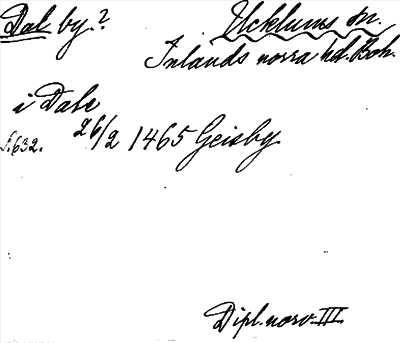 Dal by? Ucklums sn.
Inlands norra hd. Boh.
i Dale
s. 632. 26/2 1465 Geisby
Dipl. norv. III.